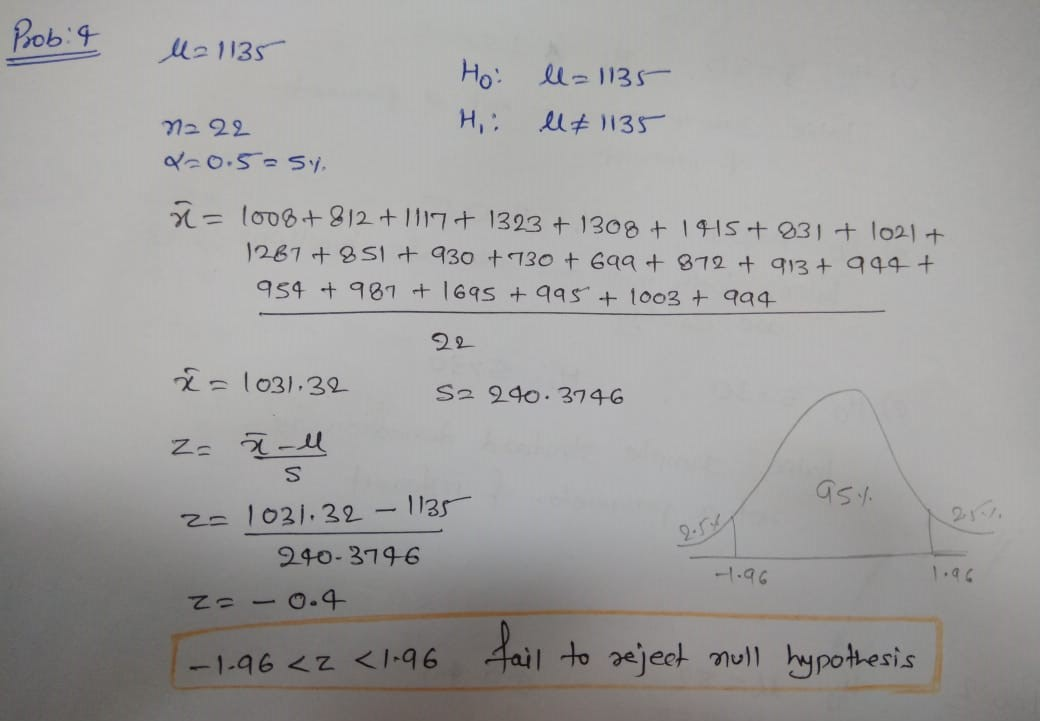 Prob: 4
μ = 1135
H₀: μ = 1135
n = 22
H₁: μ ≠ 1135
α = 0.5 = 5%
x̄ = 1008 + 812 + 1117 + 1323 + 1308 + 1415 + 831 + 1021 +
1287 + 851 + 930 + 730 + 699 + 872 + 913 + 944 +
954 + 987 + 1695 + 995 + 1003 + 994
22
x̄ = 1031.32
S = 240.3746
z = x̄ - μ
S
z = 1031.32 - 1135
240.3746
z = - 0.4
95%
2.5%
2.5%
-1.96
1.96
-1.96 < z < 1.96 fail to reject null hypothesis